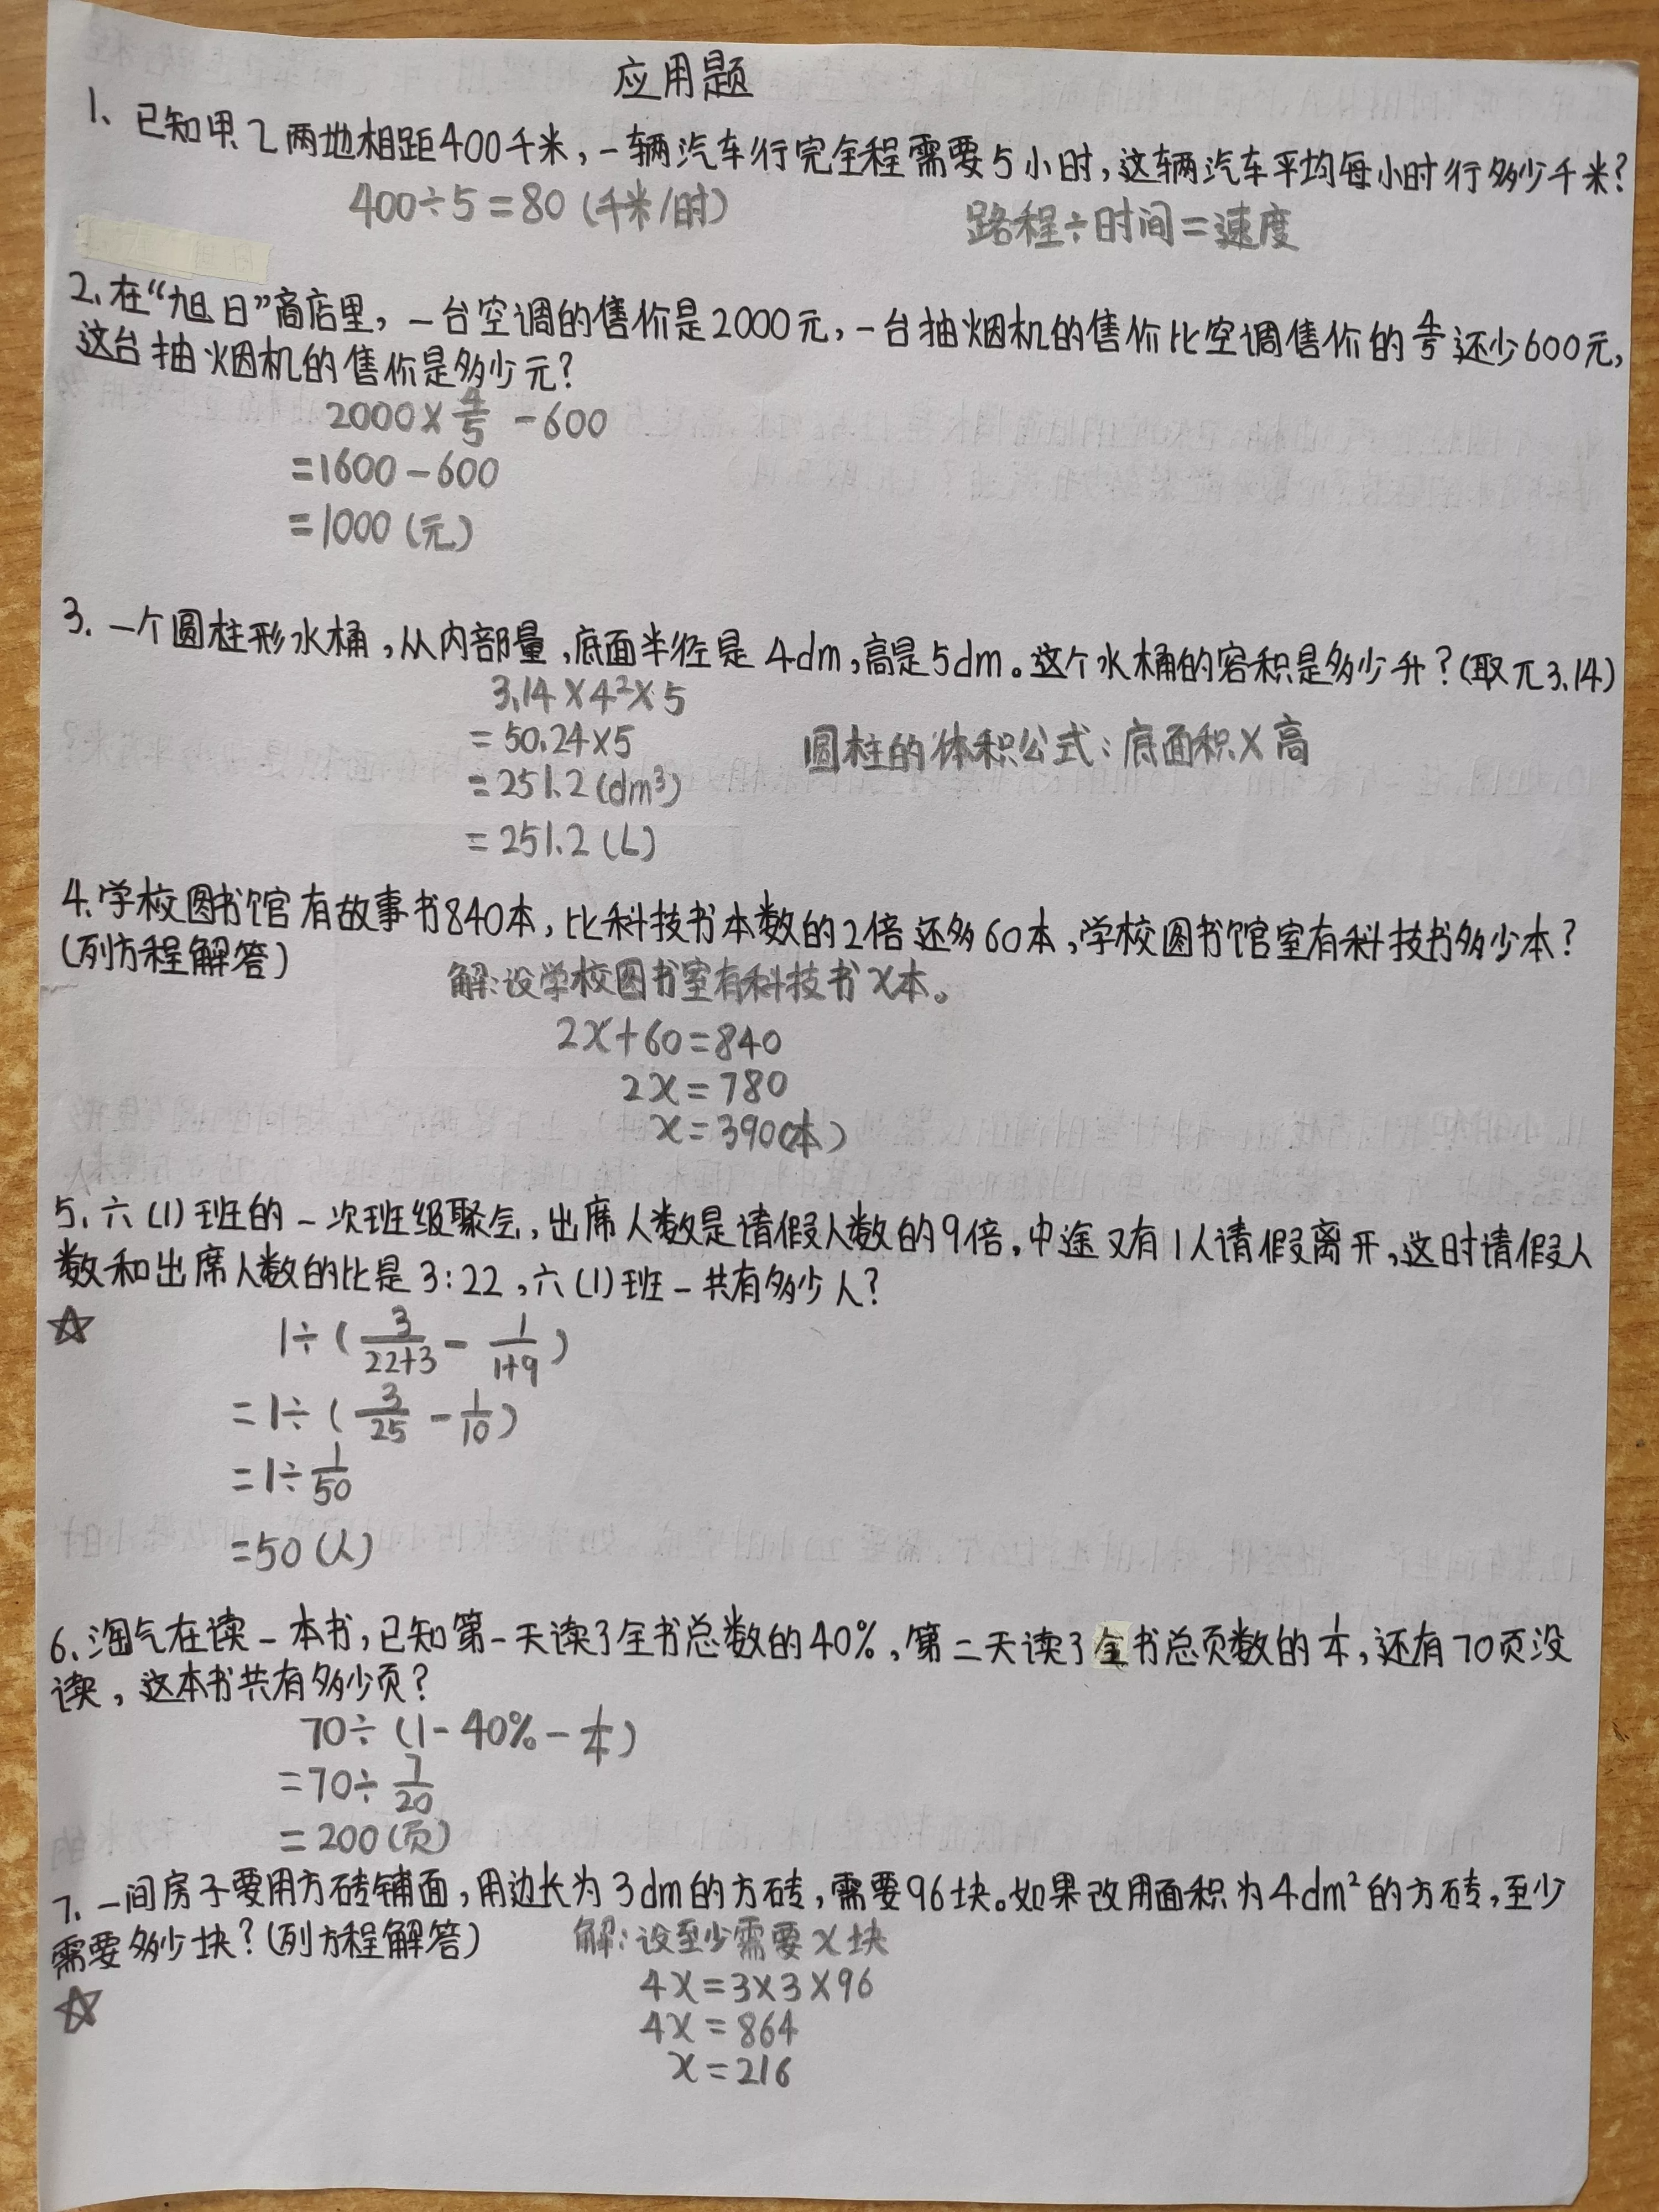 应用题
1、已知甲、乙两地相距400千米，一辆汽车行完全程需要5小时，这辆汽车平均每小时行多少千米？
400÷5=80（千米/时）
路程÷时间=速度
2、在“旭日”商店里，一台空调的售价是2000元，一台抽烟机的售价比空调售价的4/5还少600元，
这台抽烟机的售价是多少元？
2000×4/5-600
=1600-600
=1000（元）
3、一个圆柱形水桶，从内部量，底面半径是4dm，高是5dm。这个水桶的容积是多少升？（取π3.14）
3.14×4²×5
=50.24×5
圆柱的体积公式：底面积×高
=251.2（dm³）
=251.2（L）
4、学校图书馆有故事书840本，比科技书本数的2倍还多60本，学校图书馆室有科技书多少本？
（列方程解答）
解：设学校图书室有科技书x本。
2x+60=840
2x=780
x=390（本）
5、六（1）班的一次班级聚会，出席人数是请假人数的9倍，中途又有1人请假离开，这时请假人
数和出席人数的比是3:22，六（1）班一共有多少人？
☆
1÷（3/22+3-1/1+9）
=1÷（3/25-1/10）
=1÷1/50
=50（人）
6、淘气在读一本书，已知第一天读了全书总数的40%，第二天读了全书总页数的1/4，还有70页没
读，这本书共有多少页？
70÷（1-40%-1/4）
=70÷7/20
=200（页）
7、一间房子要用方砖铺面，用边长为3dm的方砖，需要96块。如果改用面积为4dm²的方砖，至少
需要多少块？（列方程解答）
解：设至少需要x块
☆
4x=3×3×96
4x=864
x=216